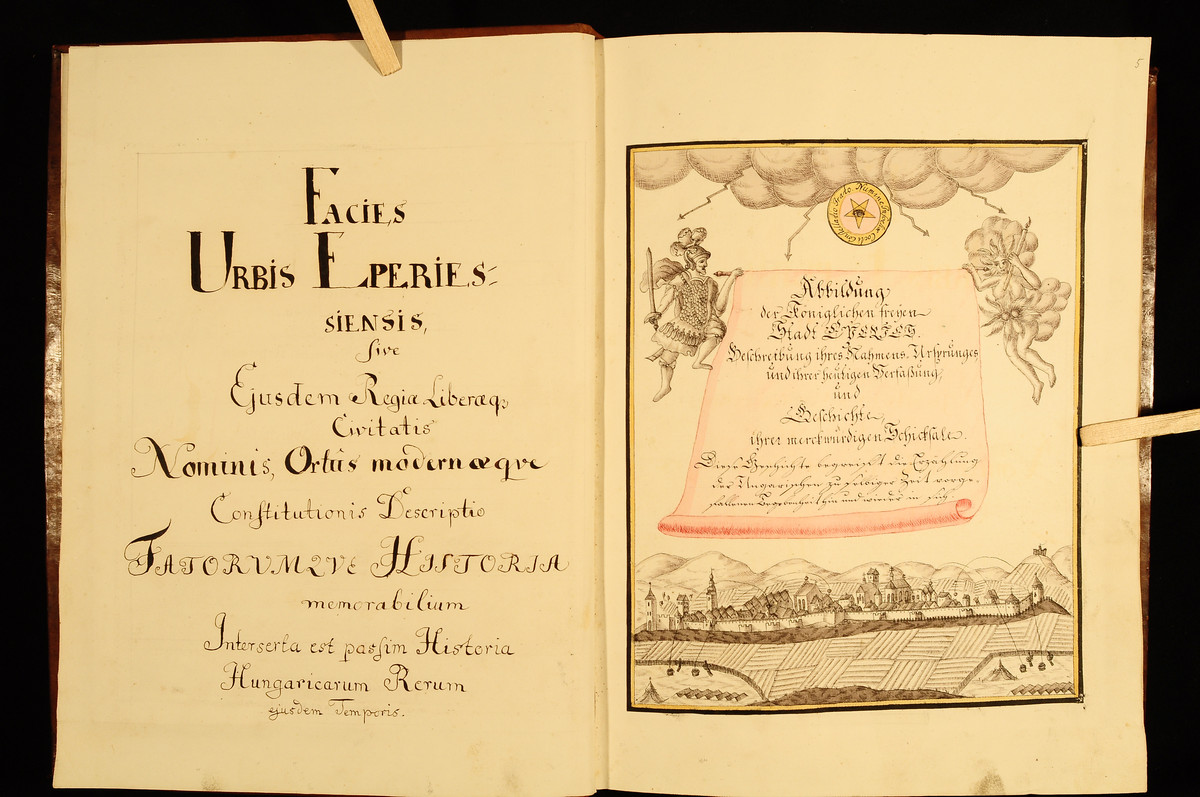 FACIES
URBIS EPERIES=
SIENSIS,
sive
Ejusdem Regiæ Liberæq3
Civitatis
Nominis, Ortûs modernæqve
Constitutionis Descriptio
FATORVMQVE HISTORIA
memorabilium
Interserta est passim Historia
Hungaricarum Rerum
ejusdem Temporis.
5
Numine
Abbildung
der Königlichen freyen
Stadt EPERIES
Beschreibung ihres Nahmens, Ursprunges
und ihrer heutigen Verfaßung,
und
Geschichte
ihrer merckwürdigen Schicksale.
Diese Geschichte begreifft die Erzählung
der Ungarischen zu selbiger Zeit vorge-
fallenen Begebenheit hin und wieder in sich.